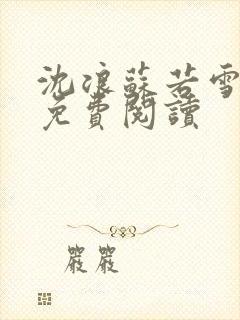 沈浪蘇若雪
免費閱讀
嚴嚴